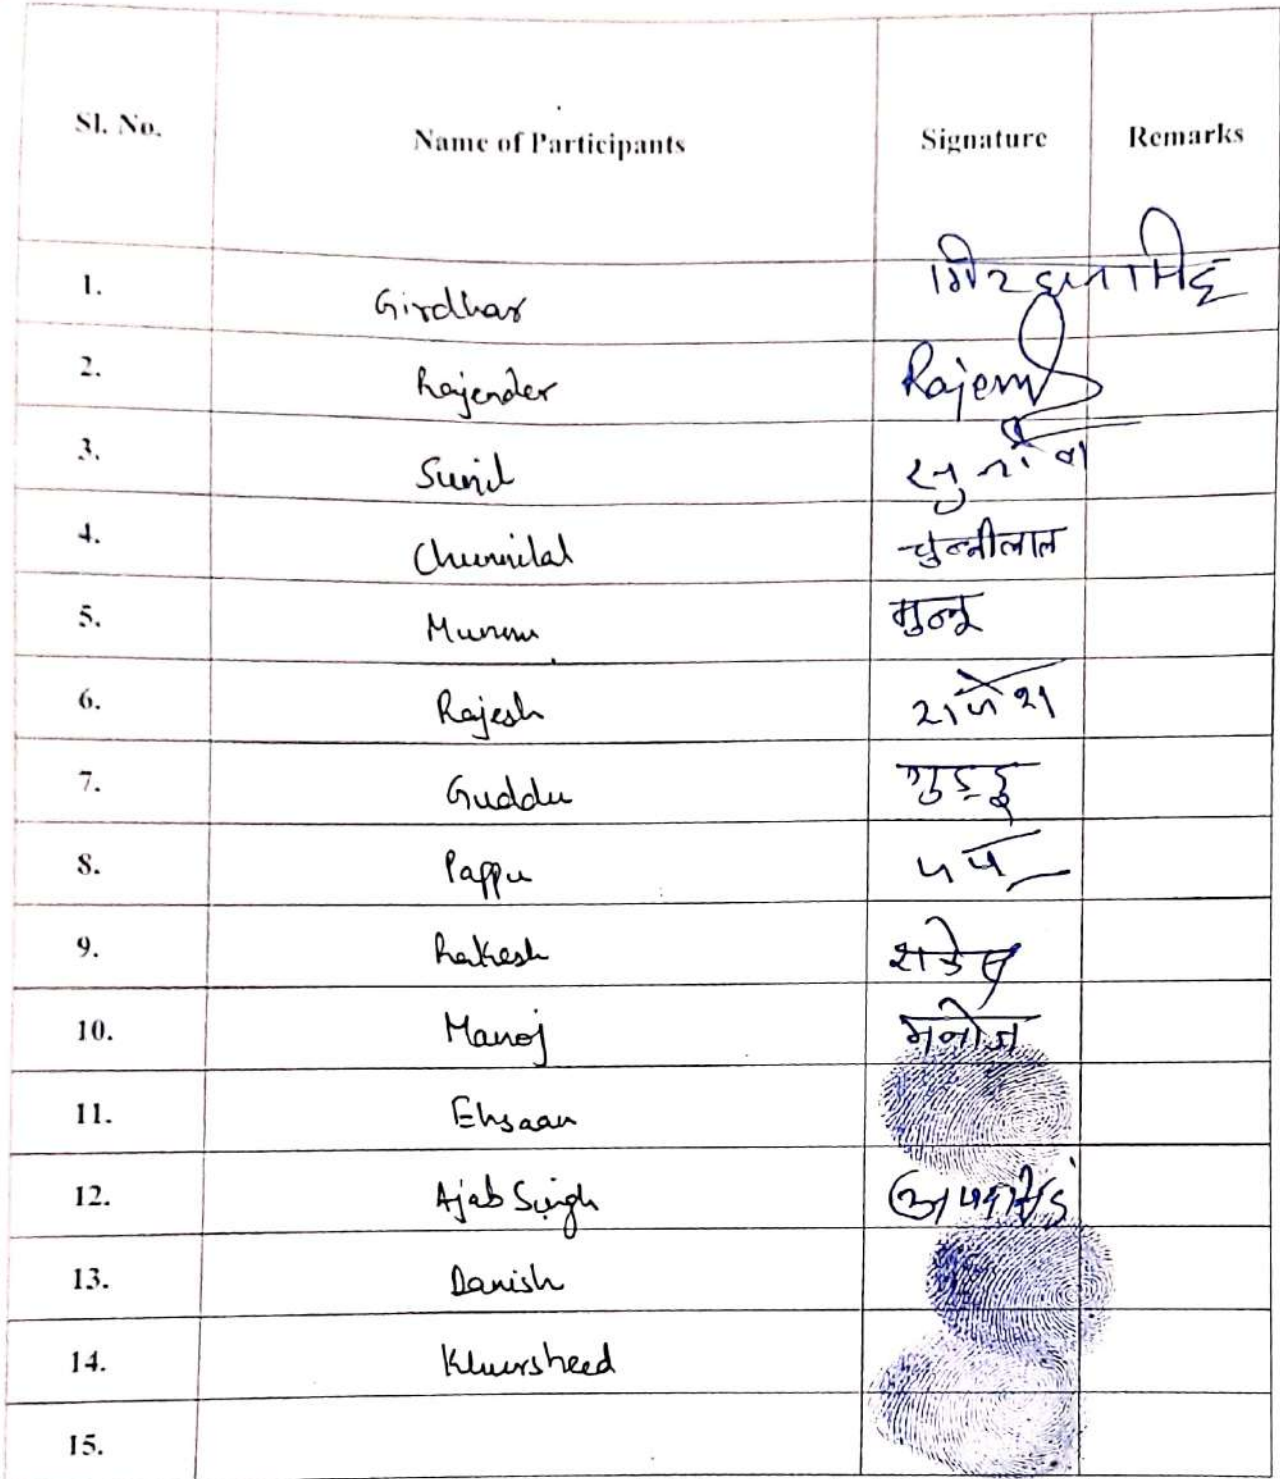 Sl. No. Name of Participants Signature Remarks
1. Girdhar
2. Rajender
3. Sunil
4. Chunnilal चुन्नीलाल
5. Munnu मुन्नू
6. Rajesh राजेश
7. Guddu गुड्डू
8. Pappu
9. Rakesh
10. Manoj मनोज
11. Ehsaan
12. Ajab Singh
13. Danish
14. Khursheed
15.